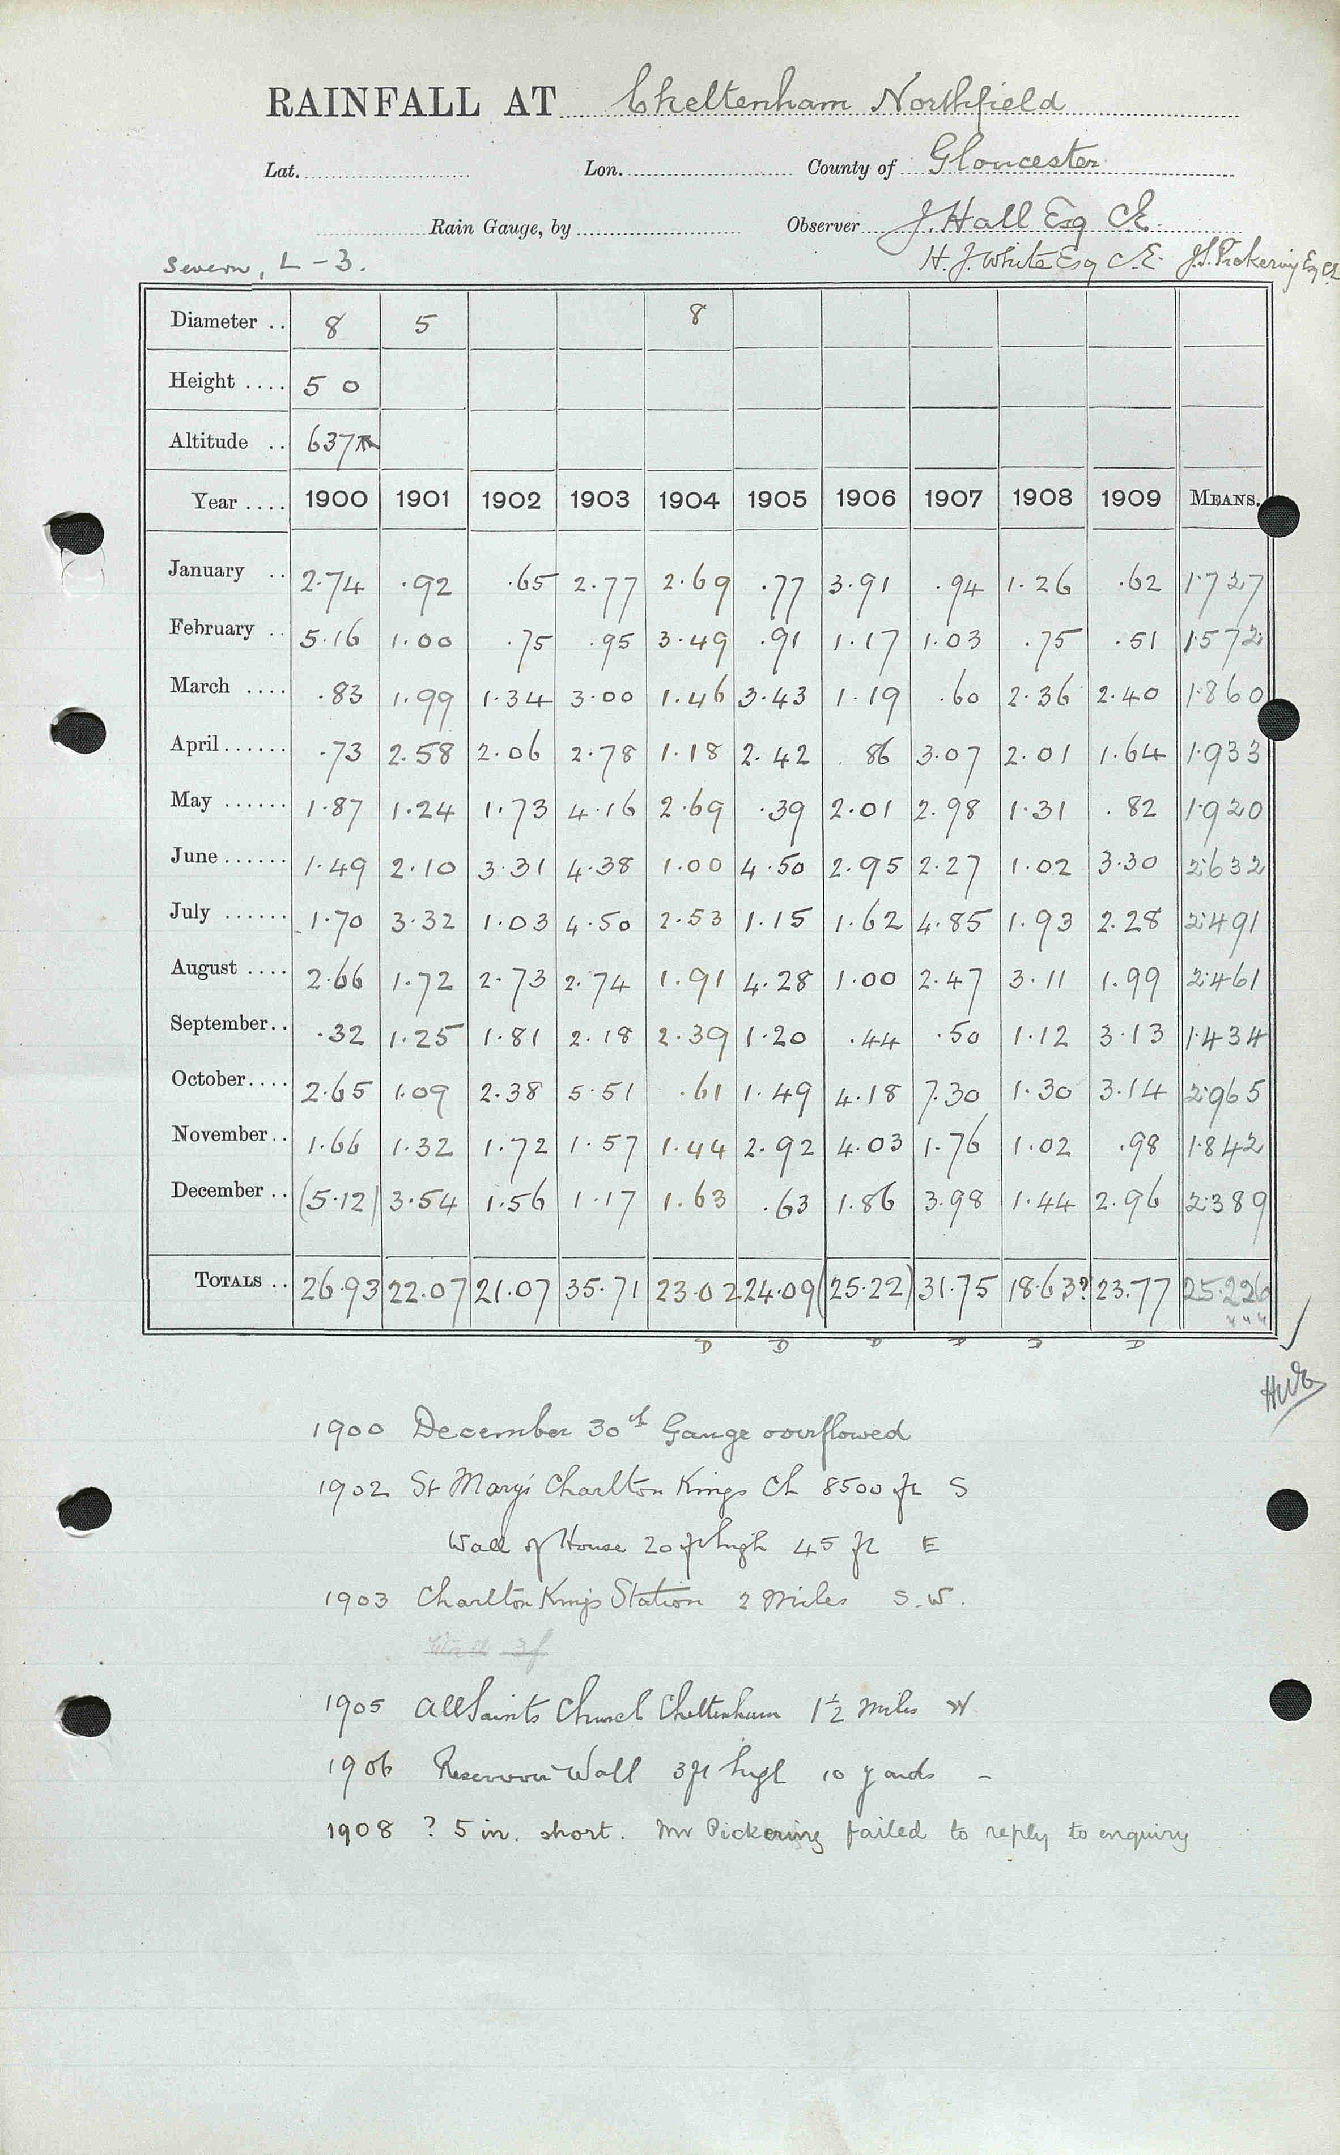 RAINFALL AT Cheltenham Northfield
Lat. Lon. County of Gloucester
Rain Gauge, by Observer J. Hall Esq C.E.
Severn, L - 3. H. J. White Esq C.E. J. S. Pickering Esq C.E.
Diameter .. 8 5 8
Height .... 5 0
Altitude .. 637
Year .... 1900 1901 1902 1903 1904 1905 1906 1907 1908 1909 MEANS.
January .. 2.74 .92 .65 2.77 2.69 .77 3.91 .94 1.26 .62 1.727
February .. 5.16 1.00 .75 .95 3.49 .91 1.17 1.03 .75 .51 1.572
March .... .83 1.99 1.34 3.00 1.46 3.43 1.19 .60 2.36 2.40 1.860
April ...... .73 2.58 2.06 2.78 1.18 2.42 86 3.07 2.01 1.64 1.933
May ...... 1.87 1.24 1.73 4.16 2.69 .39 2.01 2.98 1.31 .82 1.920
June ...... 1.49 2.10 3.31 4.38 1.00 4.50 2.95 2.27 1.02 3.30 2.632
July ...... 1.70 3.32 1.03 4.50 2.53 1.15 1.62 4.85 1.93 2.28 2.491
August .... 2.66 1.72 2.73 2.74 1.91 4.28 1.00 2.47 3.11 1.99 2.461
September .. .32 1.25 1.81 2.18 2.39 1.20 .44 .50 1.12 3.13 1.434
October .... 2.65 1.09 2.38 5.51 .61 1.49 4.18 7.30 1.30 3.14 2.965
November .. 1.66 1.32 1.72 1.57 1.44 2.92 4.03 1.76 1.02 .98 1.842
December .. (5.12) 3.54 1.56 1.17 1.63 .63 1.86 3.98 1.44 2.96 2.389
TOTALS .. 26.93 22.07 21.07 35.71 23.02 24.09 (25.22) 31.75 18.63? 23.77 25.226
D D D D D D
1900 December 30th Gauge overflowed
1902 St Mary's Charlton Kings Ch 8500 ft S
Wall of House 20 ft high 45 ft E
1903 Charlton Kings Station 2 Miles S.W.
1905 All Saints Church Cheltenham 1½ miles W
1906 Reservoir Wall 3 ft high 10 yards -
1908 ? 5 in. short. Mr Pickering failed to reply to enquiry